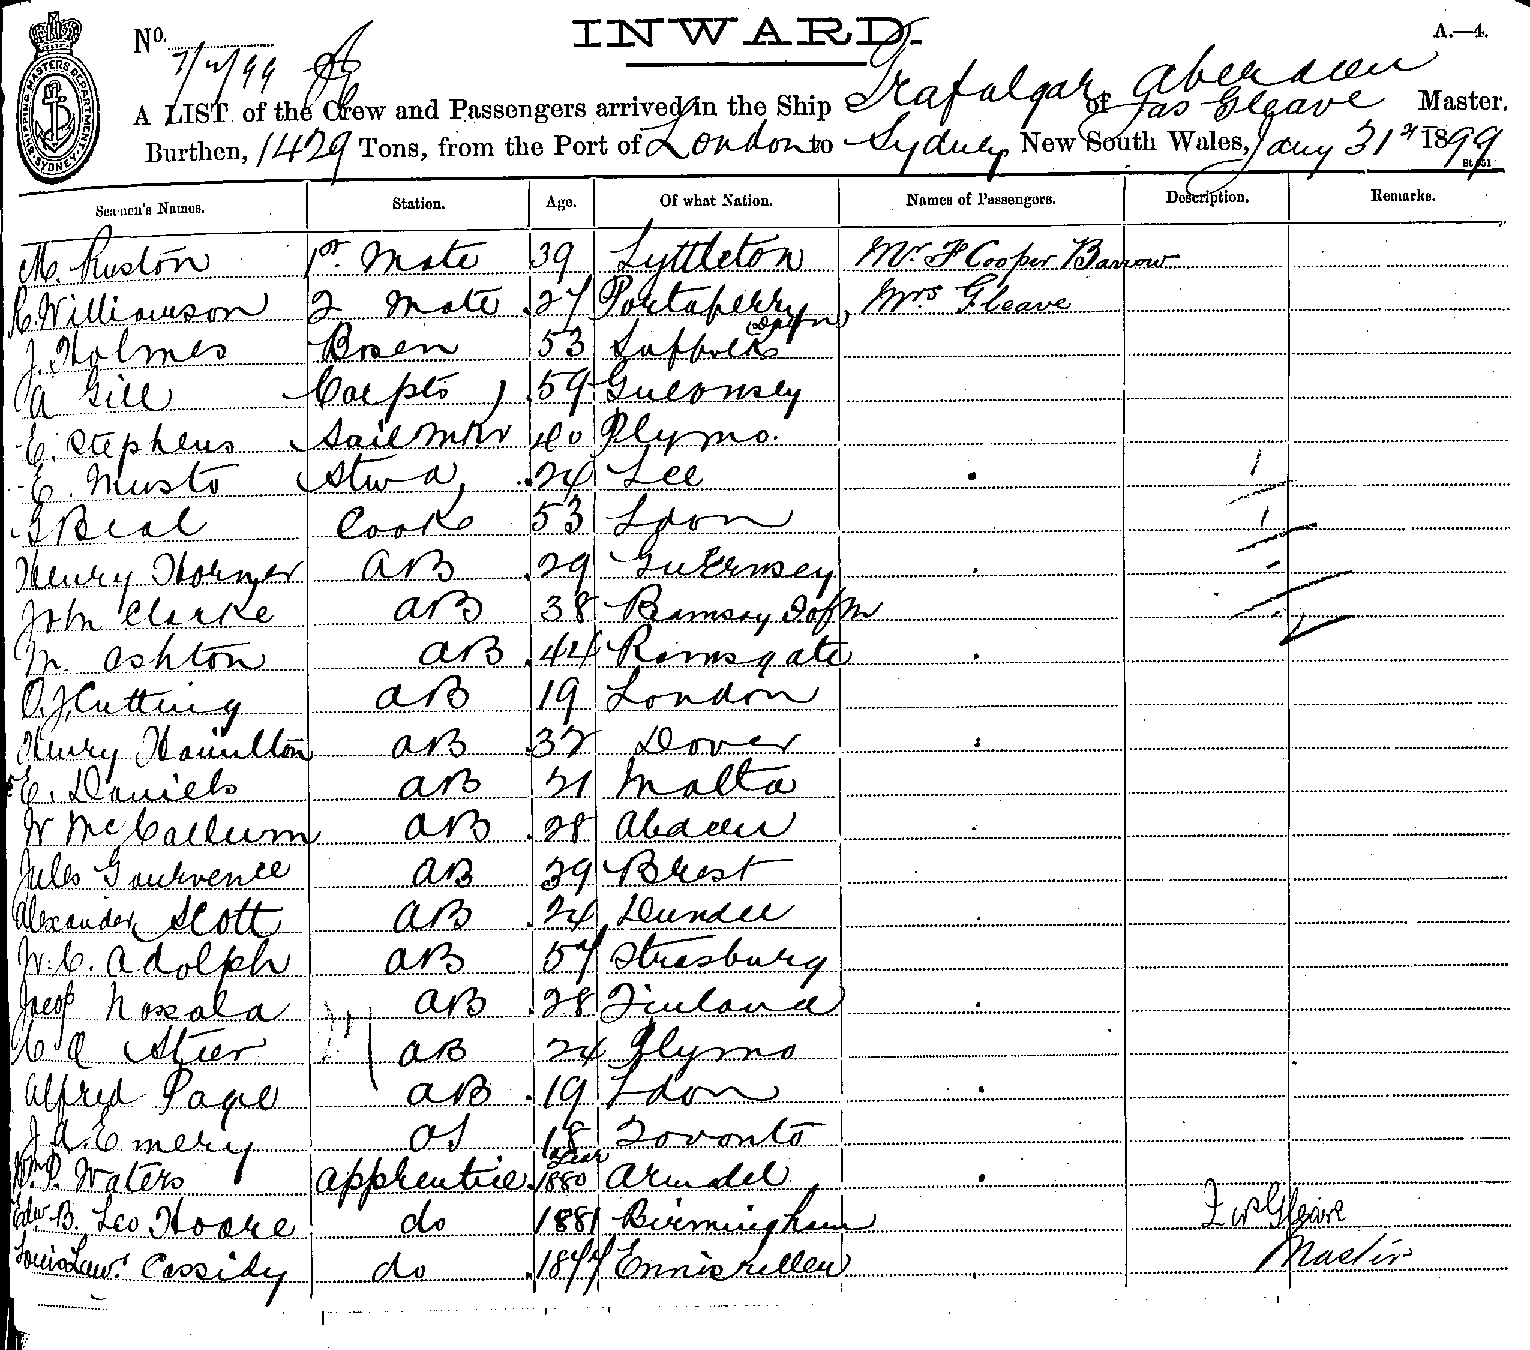 INWARD.
A.—4.
No.
7/2/99
A LIST of the Crew and Passengers arrived in the Ship Trafalgar of Aberdeen Jas Gleave Master.
Burthen, 1429 Tons, from the Port of London to Sydney New South Wales, Jany 31st 1899
SHIPPING MASTERS DEPARTMENT SYDNEY
Seamen's Names. Station. Age. Of what Nation. Names of Passengers. Description. Remarks.
M. Ruston 1st. Mate 39 Lyttleton Mr F Cooper Barrow
R. Williamson 2 Mate 27 Portaferry Down, Mrs Gleave
J. Holmes Bosen 53 Suffolk
A Gill Carptr 59 Guernsey
E. Stephens Sail Mkr 40 Plymo.
E. Musto Stwd, 24 Lee
G Beal Cook 53 Ldon
Henry Horner AB 29 Guernsey
John Clarke AB 38 Ramsay I of M
M. Ashton AB 44 Ramsgate
O. J. Cutting AB 19 London
Henry Hamilton AB 32 Dover
E. Daniels AB 21 Malta
W McCallum AB 28 Abdeen
Jules Gourvence AB 39 Brest
Alexander Scott AB 24 Dundee
W. C. Adolph AB 57 Strasburg
Jacob Noxala AB 28 Finland
C A Stier AB 24 Plymo
Alfred Page AB 19 Ldon
J. A. Emery OS 18 Toronto
Wm P. Waters apprentice Year 1880 Arundel
Edw B. Leo Hoare do 1881 Birmingham
Louis Lawr. Cassidy do 1877 Enniskillen
Jas Gleave
Master